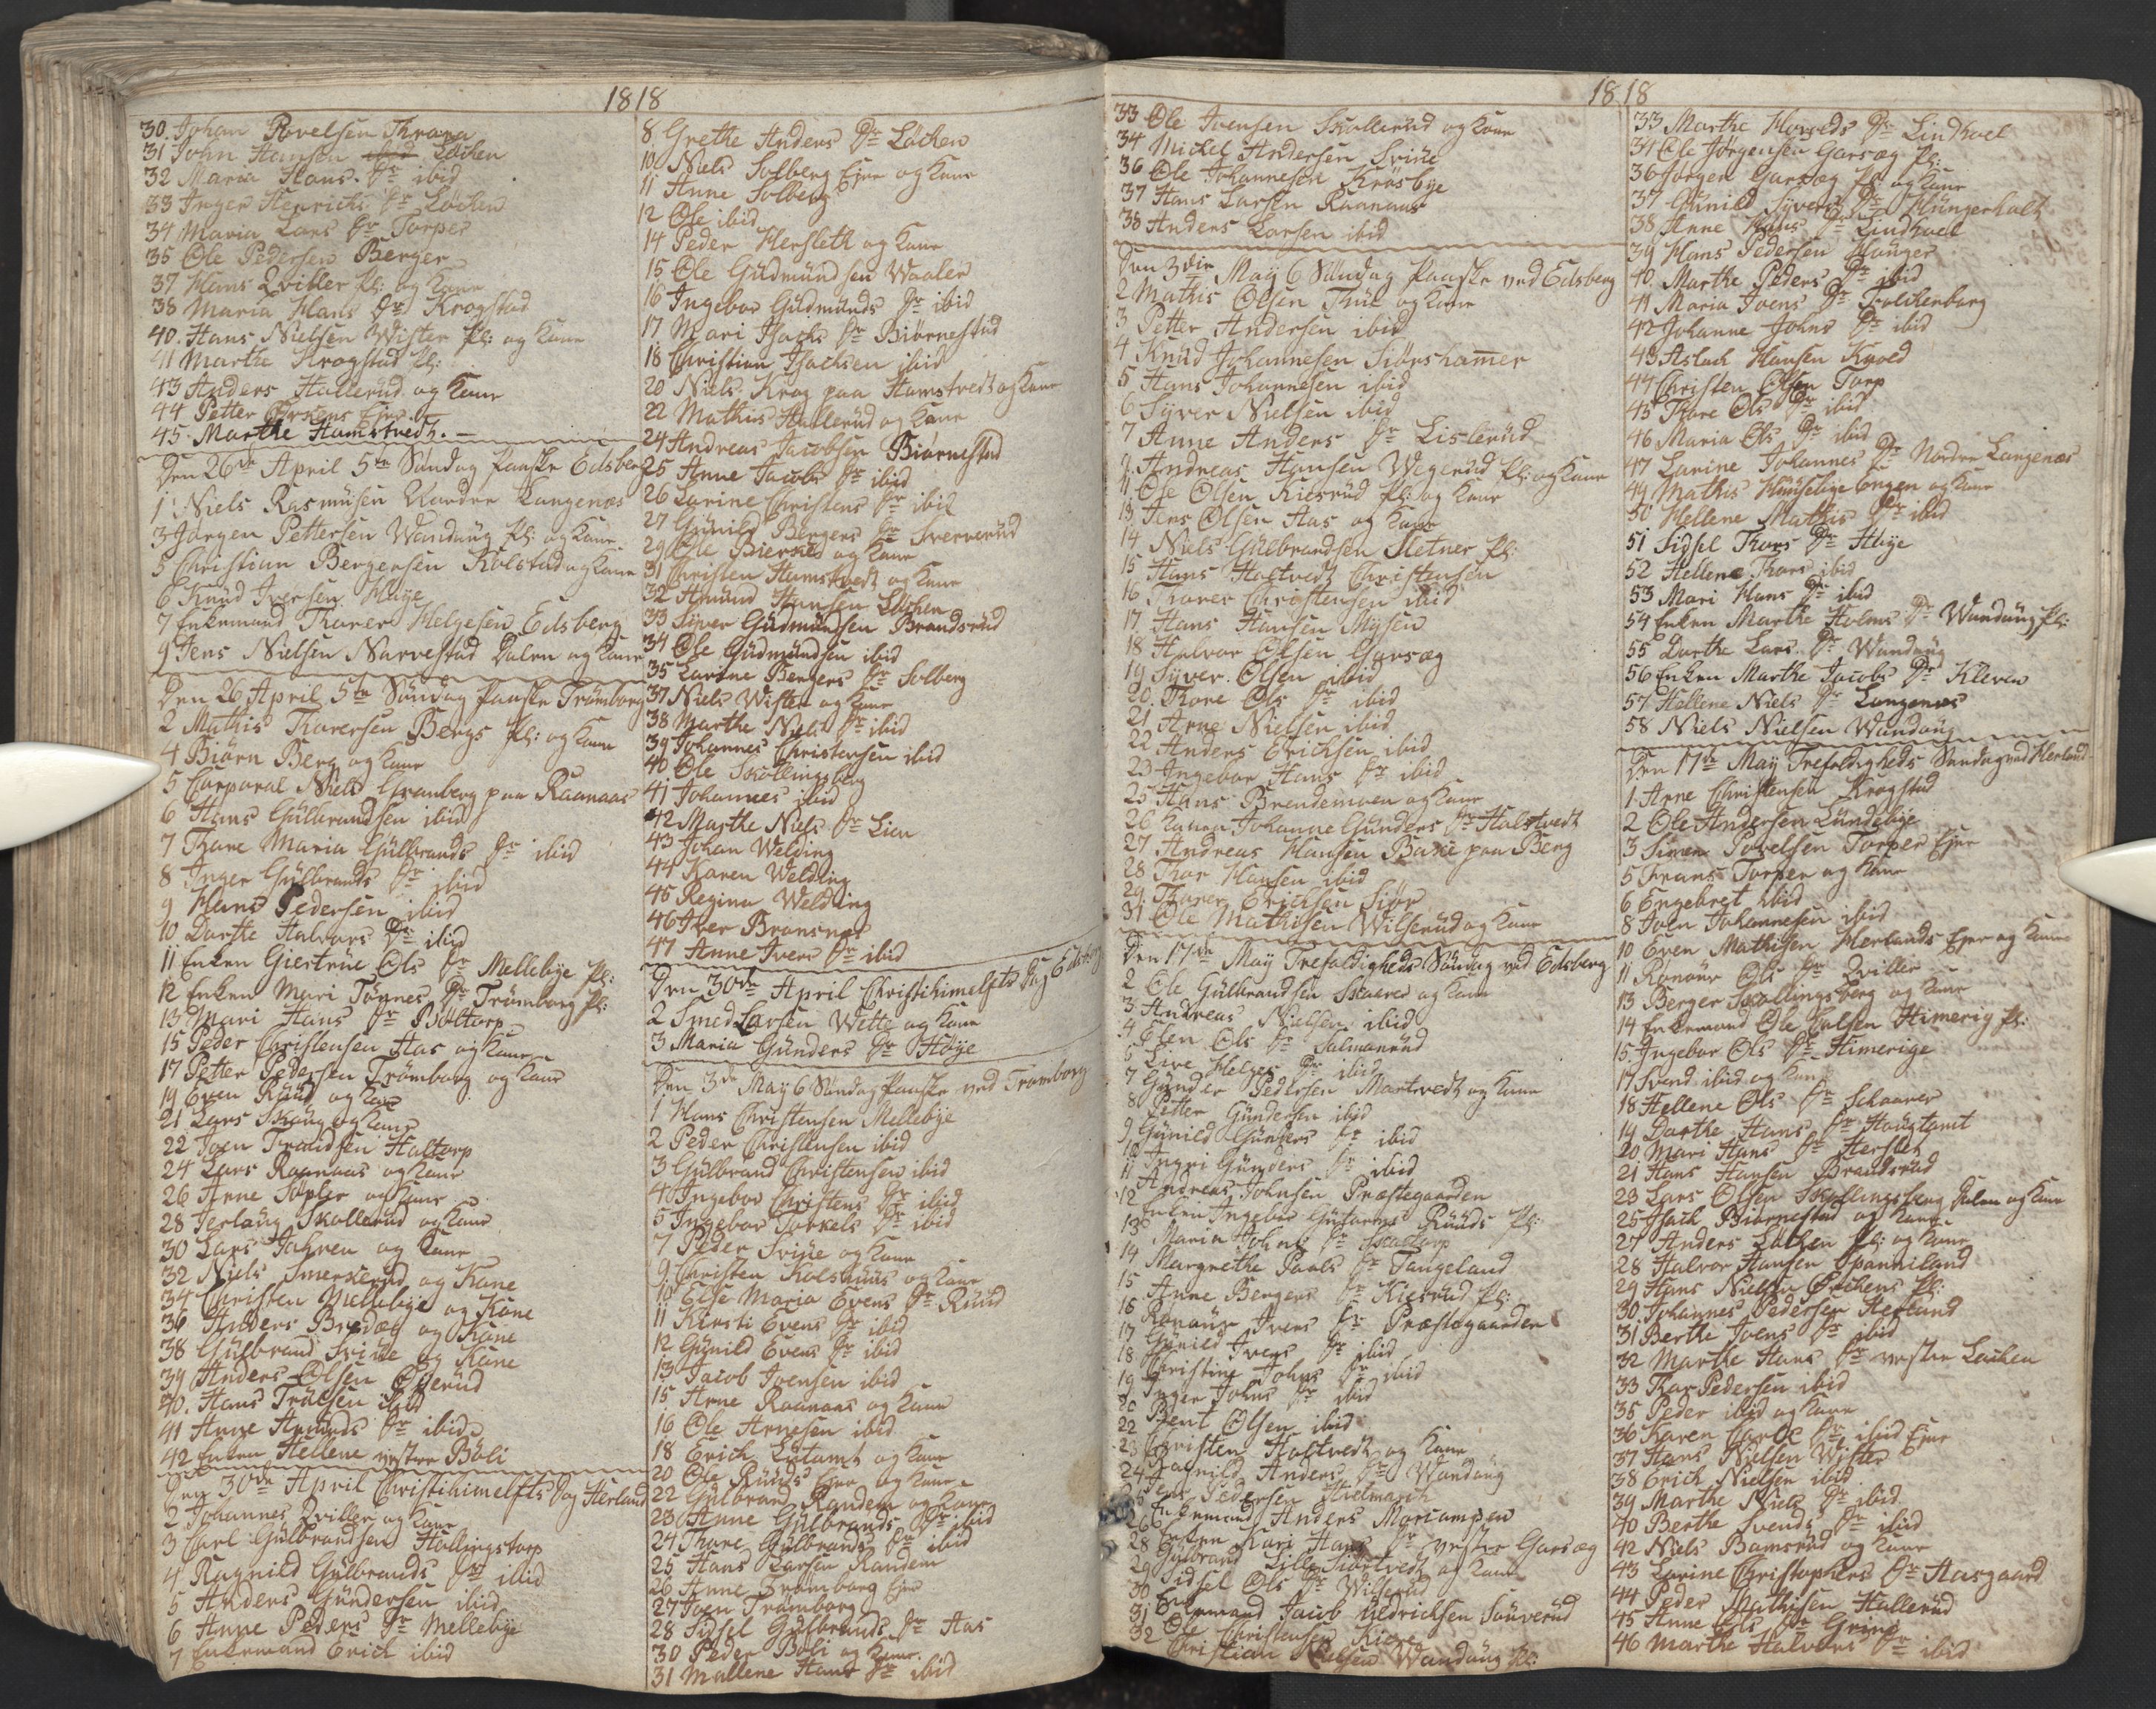 1818
30. Johan Povelsen Thrana
31 John Hansen ibid Løchen
32 Maria Hans Dr ibid
33 Inger Henrichs Dr Løchen
34 Maria Lars Dr Torper
35 Ole Pedersen Berger
37 Hans Qviller Pl: og Kone
38 Maria Hans Dr Krogstad
40. Hans Nielsen Wister Pl: og Kone
41 Marthe Krogstad Pl:
43 Anders Hallerud og Kone
44 Petter Ørkens Ejer
45. Marthe Hamstvedt. —
Den 26de April 5te Søndag Paaske Edsberg
1 Niels Rasmusen Nordre Langenæs
3 Jørgen Pettersen Wandung Pl: og Kone
5 Christian Bergersen Kolstad og Kone
6 Knud Iversen Høye
7 Enkemand Thorer Helgesen Edsberg
9 Jens Nielsen Narvestad Dalen og Kone
Den 26 April 5te Søndag Paaske Trømborg
2 Mathis Thoresen Bergs Pl: og Kone
4 Biørn Berg og Kone
5 Corporal Niels Granberg paa Raanaas
6 Hans Gulbrandsen ibid
7 Thore Maria Gulbrands Dr ibid
8 Inger Gulbrands Dr ibid
9 Hans Pedersen ibid
10 Dorthe Halvors Dr ibid
11 Enken Giertrue Ols Dr Mellebye Pl:
12 Enken Mari Tønnes Dr Trømborg Pl:
13 Mari Hans Dr Bøltorp
15 Peder Christensen Aas og Kone
17 Petter Pedersen Trømborg og Kone
19 Even Ruud og Kone
21 Lars Skoug og Kone
22 Joen Trondsen Haltorp
24 Lars Raanaas og Kone
26 Arne Søpler og Kone
28 Terlaug Skollerud og Kone
30 Lars Jahren og Kone
32 Niels Smerkerud og Kone
34 Christen Mellebye og Kone
36 Anders Bredæg og Kone
38 Gulbrand Sviue og Kone
39 Anders Olsen Opserud
40. Hans Trulsen ibid
41 Anne Amunds Dr ibid
42 Enken Hellene vestre Bøli
Den 30de April Christihimelfts Dag Herland
2 Johannes Qviller og Kone
3 Carl Gulbrandsen Hallingstorp
4 Ragnild Gulbrands Dr ibid
5 Anders Gundersen ibid
6 Anne Peders Dr Mellebye
7 Enkemand Erich ibid
8 Grethe Anders Dr Løchen
10 Niels Solberg Ejer og Kone
11 Anne Solberg
12 Ole ibid
14 Peder Hersleth og Kone
15 Ole Gudmundsen Waaler
16 Ingebor Gudmunds Dr ibid
17 Mari Isachs Dr Biørnestad
18 Christian Isachsen ibid
20 Niels Krog paa Hamstvedt og Kone
22 Mathis Hallerud og Kone
24 Andreas Jacobsen Biørnestad
25 Anne Jacobs Dr ibid
26 Larine Christens Dr ibid
27 Gunild Bergers Dr Sververud
29 Ole Bierked og Kone
31 Christen Hamstvedt og Kone
32 Amund Hansen Løchen
33 Siver Gudmundsen Brandsrud
34 Ole Gudmundsen ibid
35 Larine Bergers Dr Solberg
37 Niels Wister og Kone
38 Marthe Niels Dr ibid
39 Johannes Christensen ibid
40 Ole Skollingsberg
41 Johannes ibid
42 Marthe Niels Dr Lien
43 Johan Welding
44 Karen Welding
45 Regina Welding
46 Iver Bronsnes
47 Anne Ivers Dr ibid
Den 30de April Christihimelfts Dag Edsberg
2 Smed Larsen Wette og Kone
3 Maria Gunders Dr Høye
Den 3de May 6 Søndag Paaske ved Tromborg
1 Hans Christensen Mellebye
2 Peder Christensen ibid
3 Gulbrand Christensen ibid
4 Ingebor Christens Dr ibid
5 Ingebor Torkels Dr ibid
7 Peder Sviue og Kone
9 Christen Kolshuus og Kone
10 Else Maria Evens Dr Ruud
11 Kirsti Evens Dr ibid
12 Gunild Evens Dr ibid
13 Jacob Joensen ibid
15. Arne Raanaas og Kone
16 Ole Arnesen ibid
18 Erich Lutamt og Kone
20 Ole Ruuds Ejer og Kone
22 Gulbrand Randem og Kone
23 Anne Gulbrands Dr ibid
24 Thore Gulbrands Dr ibid
25 Hans Larsen Randem
26 Anne Trømborg Ejer
27 Joen Trømborg
28 Sidsel Gulbrands Dr Aas
30 Peder Bøli og Kone.
31 Mallene Hans Dr ibid
1818
33 Ole Joensen Skollerud og Kone
34 Michel Andersen Sviue
36 Ole Johannesen Krosbye
37 Hans Larsen Raanaas
38 Anders Larsen ibid
Den 3die May 6 Søndag Paaske ved Edsberg
2 Mathis Olsen Thue og Kone
3 Petter Andersen ibid
4 Knud Johannesen Siørshamer
5 Hans Johannesen ibid
6 Syver Nielsen ibid
7 Anne Anders Dr Lislerud
9. Andreas Hansen Wegerud Pl: og Kone
11 Ole Olsen Kiesrud Pl: og Kone
13 Jens Olsen Aas og Kone
14 Niels Gulbrandsen Sletner Pl:
15 Hans Holtvedt Christensen
16 Thorer Christensen ibid
17 Hans Hansen Mysen
18 Halvor Olsen Garsæg
19 Syver Olsen ibid
20. Thore Ols Dr ibid
21 Arne Nielsen ibid
22 Anders Erichsen ibid
23 Ingebor Hans Dr ibid
25 Hans Brendemoen og Kone
26 Karen Johanne Gunders Dr Halstvedt
27 Andreas Hansen Baxe paa Berg
28 Thor Hansen ibid
29. Thorer Erichsen Siør
31 Ole Mathisen Wilserud og Kone
Den 17de May Trefoldigheds Søndag ved Edsberg
2 Ole Gulbrandsen Skaarer og Kone
3 Andreas Nielsen ibid
4 Elen Ols Dr Salmonrud
5 Live Helges Dr ibid
7 Gunder Pedersen Mortvedt og Kone
8 Petter Gundersen ibid
9 Gunild Gunders Dr ibid
10 Ingri Gunders Dr ibid
11 Andreas Johnsen Præstegaarden
12 Enken Ingebor Gutorms Ruuds Pl:
13 Maria Johns Dr
14 Margrethe Paals Dr Tangeland
15 Anne Bergers Dr Kiesrud Pl:
16 Ronaug Ivers Dr Præstegaarden
17 Gunild Ivers Dr ibid
18 Christine Johns Dr ibid
19 Inger Johns Dr ibid
20 Bent Olsen ibid
22 Christen Holtvedt og Kone
23 Ragnild Anders Dr Wandung
24 Jens Pedersen
25 Enkemand Anders
26 Enken Kari Hans Dr vestre Garsæg
28 Gulbrand Lille og Kone
29 Sidsel Ols Dr Wilserud
30 Enkemand Jacob Uldrichsen Souverud
31 Ole Christensen
32 Christian Wandung Pl:
1818
33 Marthe Hovelds Dr Lindhoel
34 Ole Jørgensen Garsæg Pl:
36 Jørgen Garsæg Pl: og Kone
37 Gunild Syvers Dr Hungerholt
38 Anne Hans Dr Lindhoel
39 Hans Pedersen Hunger
40. Marthe Peders Dr ibid
41 Maria Joens Dr Trolchenborg
42 Johanne Johns Dr ibid
43 Aslach Hansen Kroed
44 Christen Olsen Torp
45 Thore Ols Dr ibid
46 Maria Ols Dr ibid
47 Larine Johannes Dr Nordre Langenæs
49 Mathis og Kone
50 Hellene Mathis Dr ibid
51 Sidsel Thors Dr Høye
52 Hellene Thors ibid
53 Mari Hans Dr ibid
54 Enken Marthe Holms Dr Wandung Pl:
55 Dorthe Lars Dr Wandung
56 Enken Marthe Jacobs Dr Kleven
57 Hellene Niels Dr Langenæs
58 Niels Nielsen Wandung
Den 17de May Trefoldigheds Søndag ved Herland
1. Arne Christensen Krogstad
2 Ole Andersen Lundebye
3 Simen Povelsen Torper Ejer
5 Frans Torper og Kone
6 Engebret ibid
8 Joen Johannesen ibid
10 Even Mathisen Herlands Ejer og Kone
11 Ronaug Ols Dr Qviller
13 Berger Skollingsberg og Kone
14 Enkemand Ole Himerig Pl:
15 Ingebor Ols Dr Himerige
17 Svend ibid og Kone
18 Hellene Ols Dr Schaarer
19 Dorthe Hans Dr Haugtomt
20 Mari Hans Dr Herslet
21 Hans Hansen Brandsrud
23 Lars Olsen Skollingsberg Dalen og Kone
25 Isach Biørnestad og Kone
27 Anders Løchen Pl: og Kone
28 Halvor Hansen Spanniland
29 Hans Nielsen Ørchens Pl:
30. Johannes Pedersen Herland
31 Berthe Joens Dr ibid
32 Marthe Hans Dr vestre Løchen
33 Thor Pedersen ibid
35 Peder ibid og Kone
36 Karen Dr ibid Ejer
37 Hans Nielsen Wister
38 Erich Nielsen ibid
39 Marthe Niels Dr ibid
40 Berthe Svends Dr ibid
42 Niels Bamsrud og Kone
43 Larine Christophers Dr Aasgaard
44 Peder Mathisen Hallerud
45 Anne Ols Dr Grind
46 Marthe Halvors Dr ibid